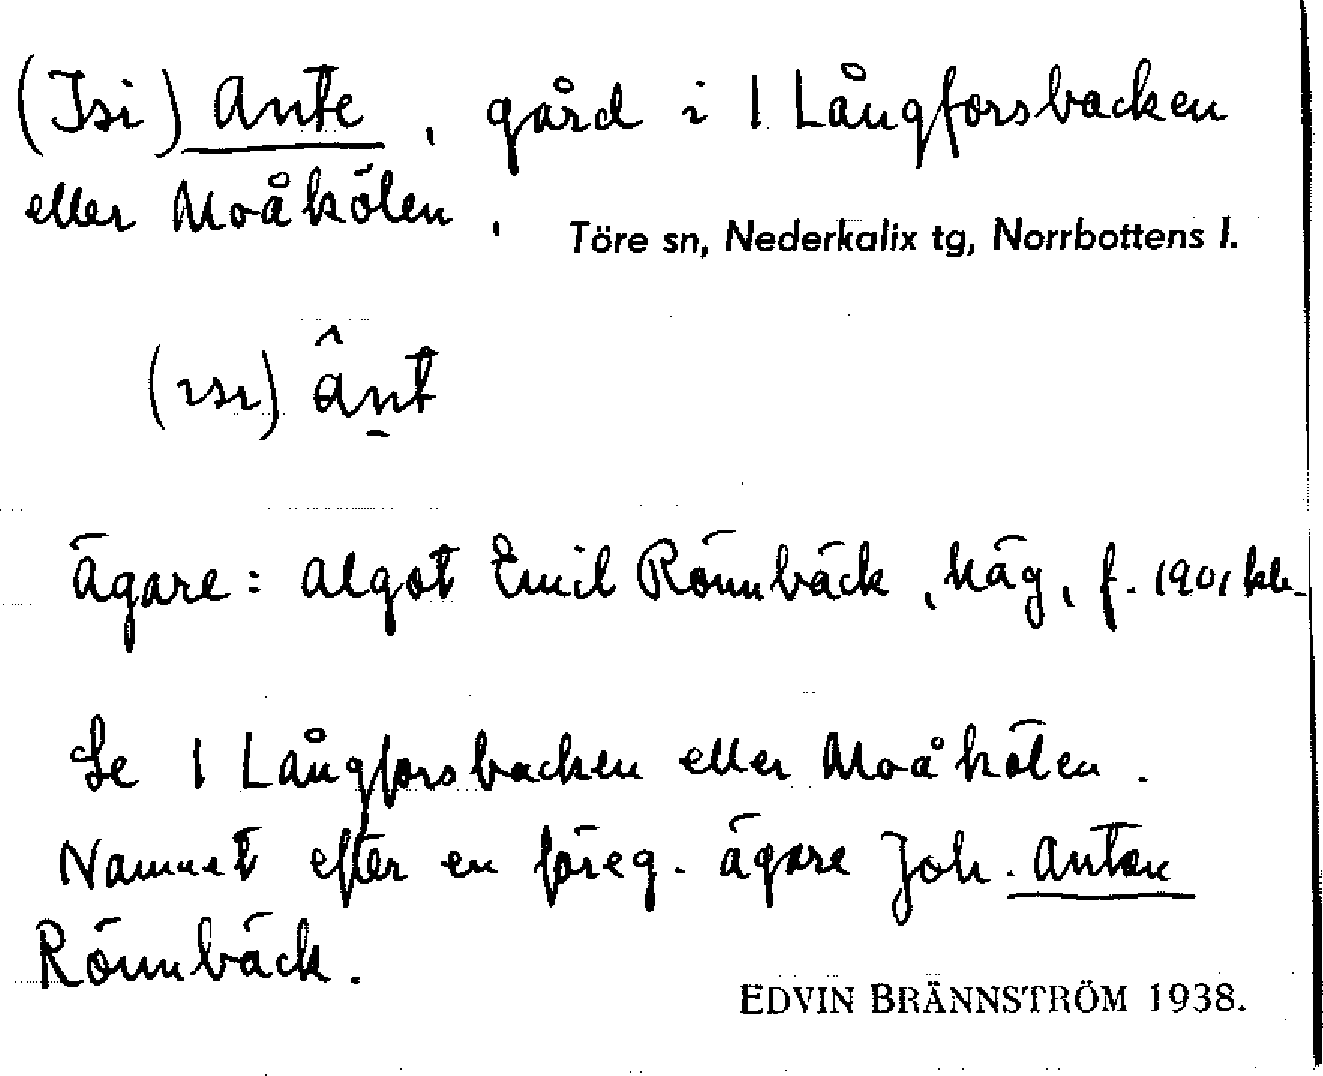 (Isi) Ante, gård i 1 Långforsbacken
eller Moåkölen.
Töre sn, Nederkalix tg, Norrbottens l.
(ısı) â̂n̠t
Ägare: Algot Emil Rönnbäck, häg, f. 1901 kb.
Se 1 Långforsbacken eller Moåkölen.
Namnet efter en föreg. ägare Joh. Anton
Rönnbäck.
EDVIN BRÄNNSTRÖM 1938.